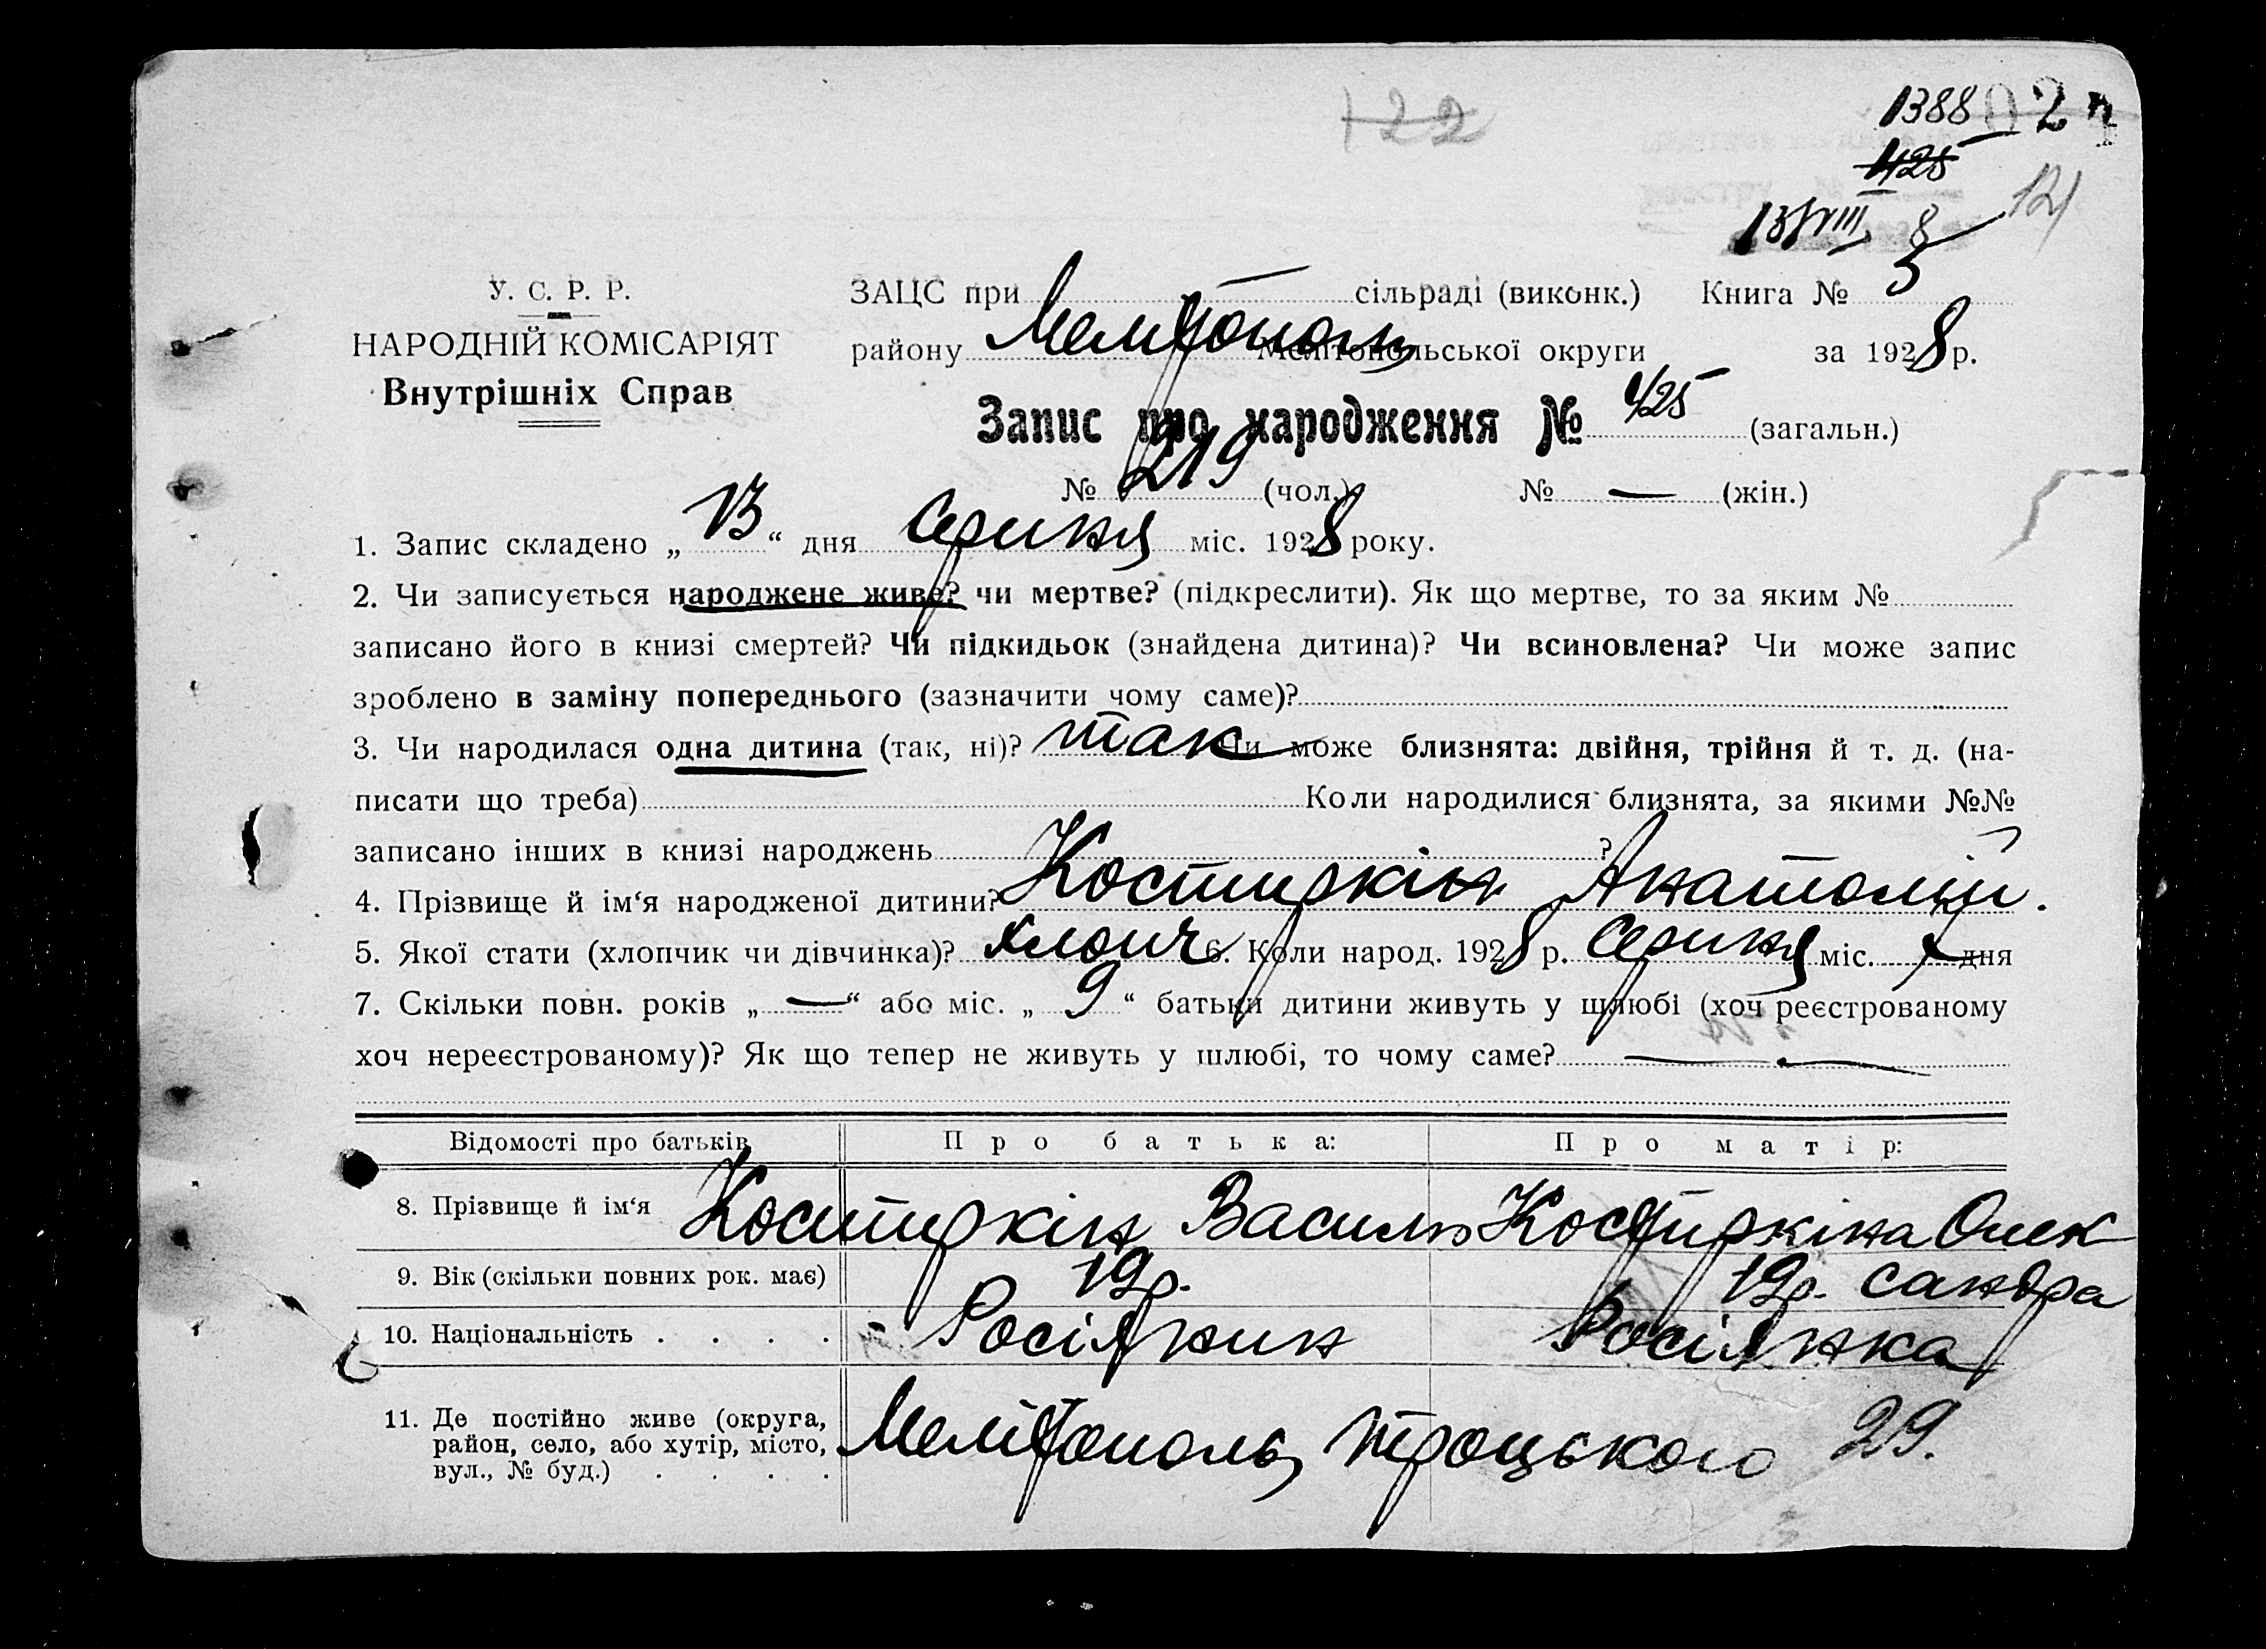 122
1388 02
425
13/VIII 8 121
У. С. Р. Р.
НАРОДНІЙ КОМІСАРІЯТ
Внутрішніх Справ
ЗАЦС при сільраді (виконк.) Книга № 3
району Мелітополь Мелітопольської округи за 1928 р.
Запис про народження № 425 (загальн.)
№ 219 (чол.) № — (жін.)
1. Запис складено „13“ дня серпня міс. 1928 року.
2. Чи записується народжене живе? чи мертве? (підкреслити). Як що мертве, то за яким №
записано його в книзі смертей? Чи підкидьок (знайдена дитина)? Чи всиновлена? Чи може запис
зроблено в заміну попереднього (зазначити чому саме)?
3. Чи народилася одна дитина (так, ні)? так Чи може близнята: двійня, трійня й т. д. (на-
писати що треба) Коли народилися близнята, за якими №№
записано інших в книзі народжень ?
4. Прізвище й ім‘я народженої дитини? Костиркін Анатолій.
5. Якої стати (хлопчик чи дівчинка)? хлопч 6. Коли народ. 1928 р. серпня міс. дня
7. Скільки повн. років „—“ або міс. „9“ батьки дитини живуть у шлюбі (хоч реєстрованому
хоч нереєстрованому)? Як що тепер не живуть у шлюбі, то чому саме? —
Відомості про батьків Про батька: Про матір:
8. Прізвище й ім‘я Костиркін Василь Костиркіна Олек
9. Вік (скільки повних рок. має) 19р. 19р. сандра
10. Національність . . . . Росіянин Росіянка
11. Де постійно живе (округа,
район, село, або хутір, місто,
вул., № буд.) . . . . Мелітополь, Троцького 29.